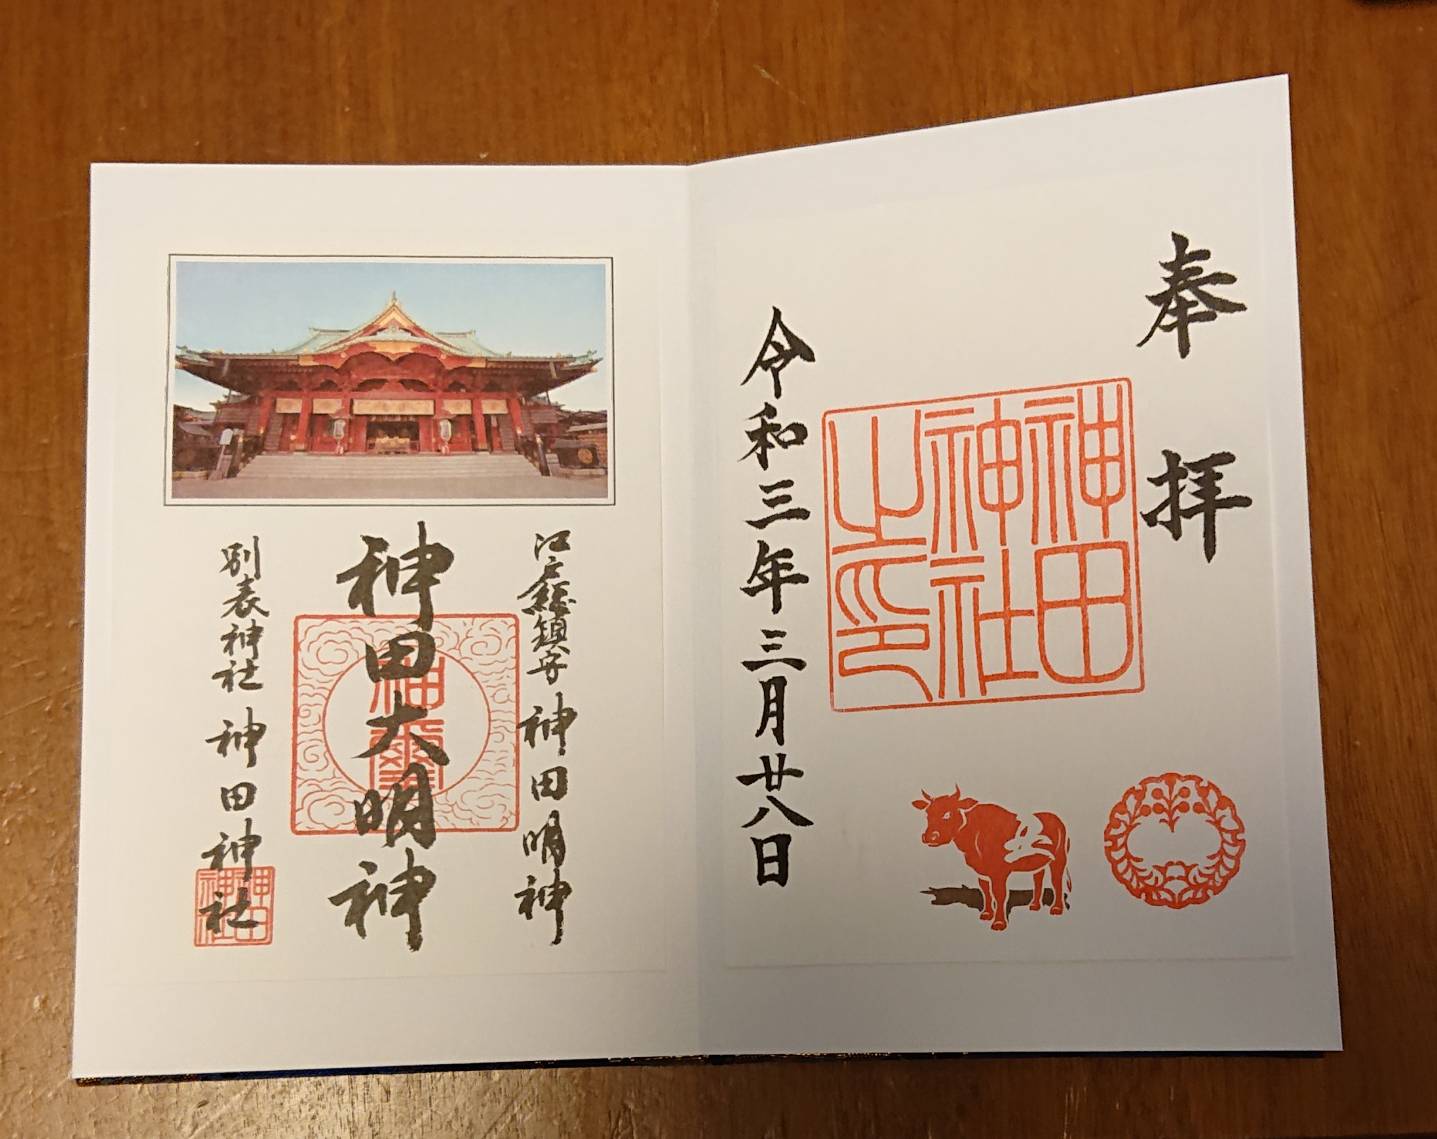 奉拝
神田
神社
之印
令和三年三月廿八日
江戸総鎮守 神田明神
神田大明神
別表神社 神田神社
神田
神社